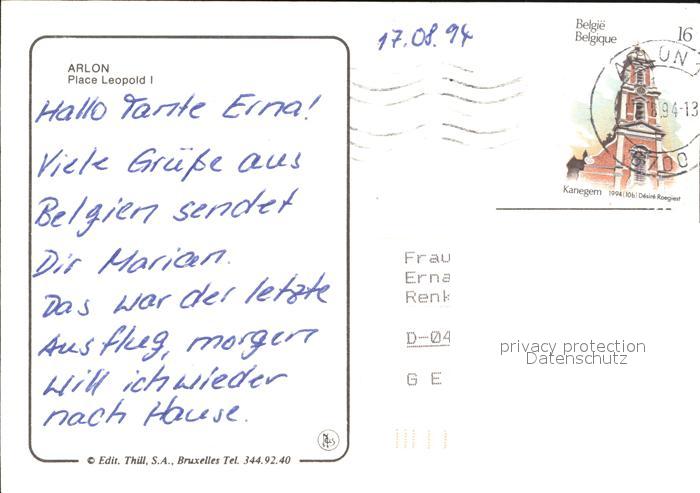 17.08.94
België
Belgique
16
ARLON
Place Leopold I
Hallo Tante Erna!
Viele Grüße aus
Belgien sendet
Dir Marian.
Das war der letzte
Ausflug, morgen
will ich wieder
nach Hause.
© Edit. Thill, S.A., Bruxelles Tel. 344.92.40
94-13
6700
Kanegem 1994 (10b) Désiré Roegiest
Frau
Erna
Renk
D-04
G E
privacy protection
Datenschutz